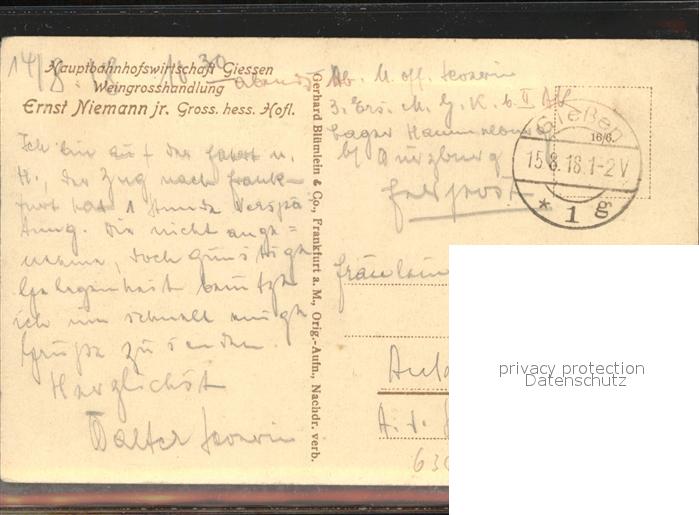 14/8. 18 10 30 abends
Hauptbahnhofswirtschaft Giessen
Weingrosshandlung
Ernst Niemann jr. Gross. hess. Hofl.
Ich bin auf der Fahrt n.
H., der Zug nach Frank-
furt hat 1 Stunde Verspä-
tung. Die nicht ange=
nehme, doch günstige
Gelegenheit benutze
ich um schnell einige
Grüße zu senden.
Herzlichst
Walter
Gerhard Blümlein & Co., Frankfurt a. M., Orig.-Aufn., Nachdr. verb.
Abs. U. off.
3. Ers. M. G. K. b. II
Lager Hammelburg
b/ Würzburg
Feldpost
Gießen
16/6.
15.8.18.1-2V
* 1 g
Fräulein
A. d.
privacy protection
Datenschutz